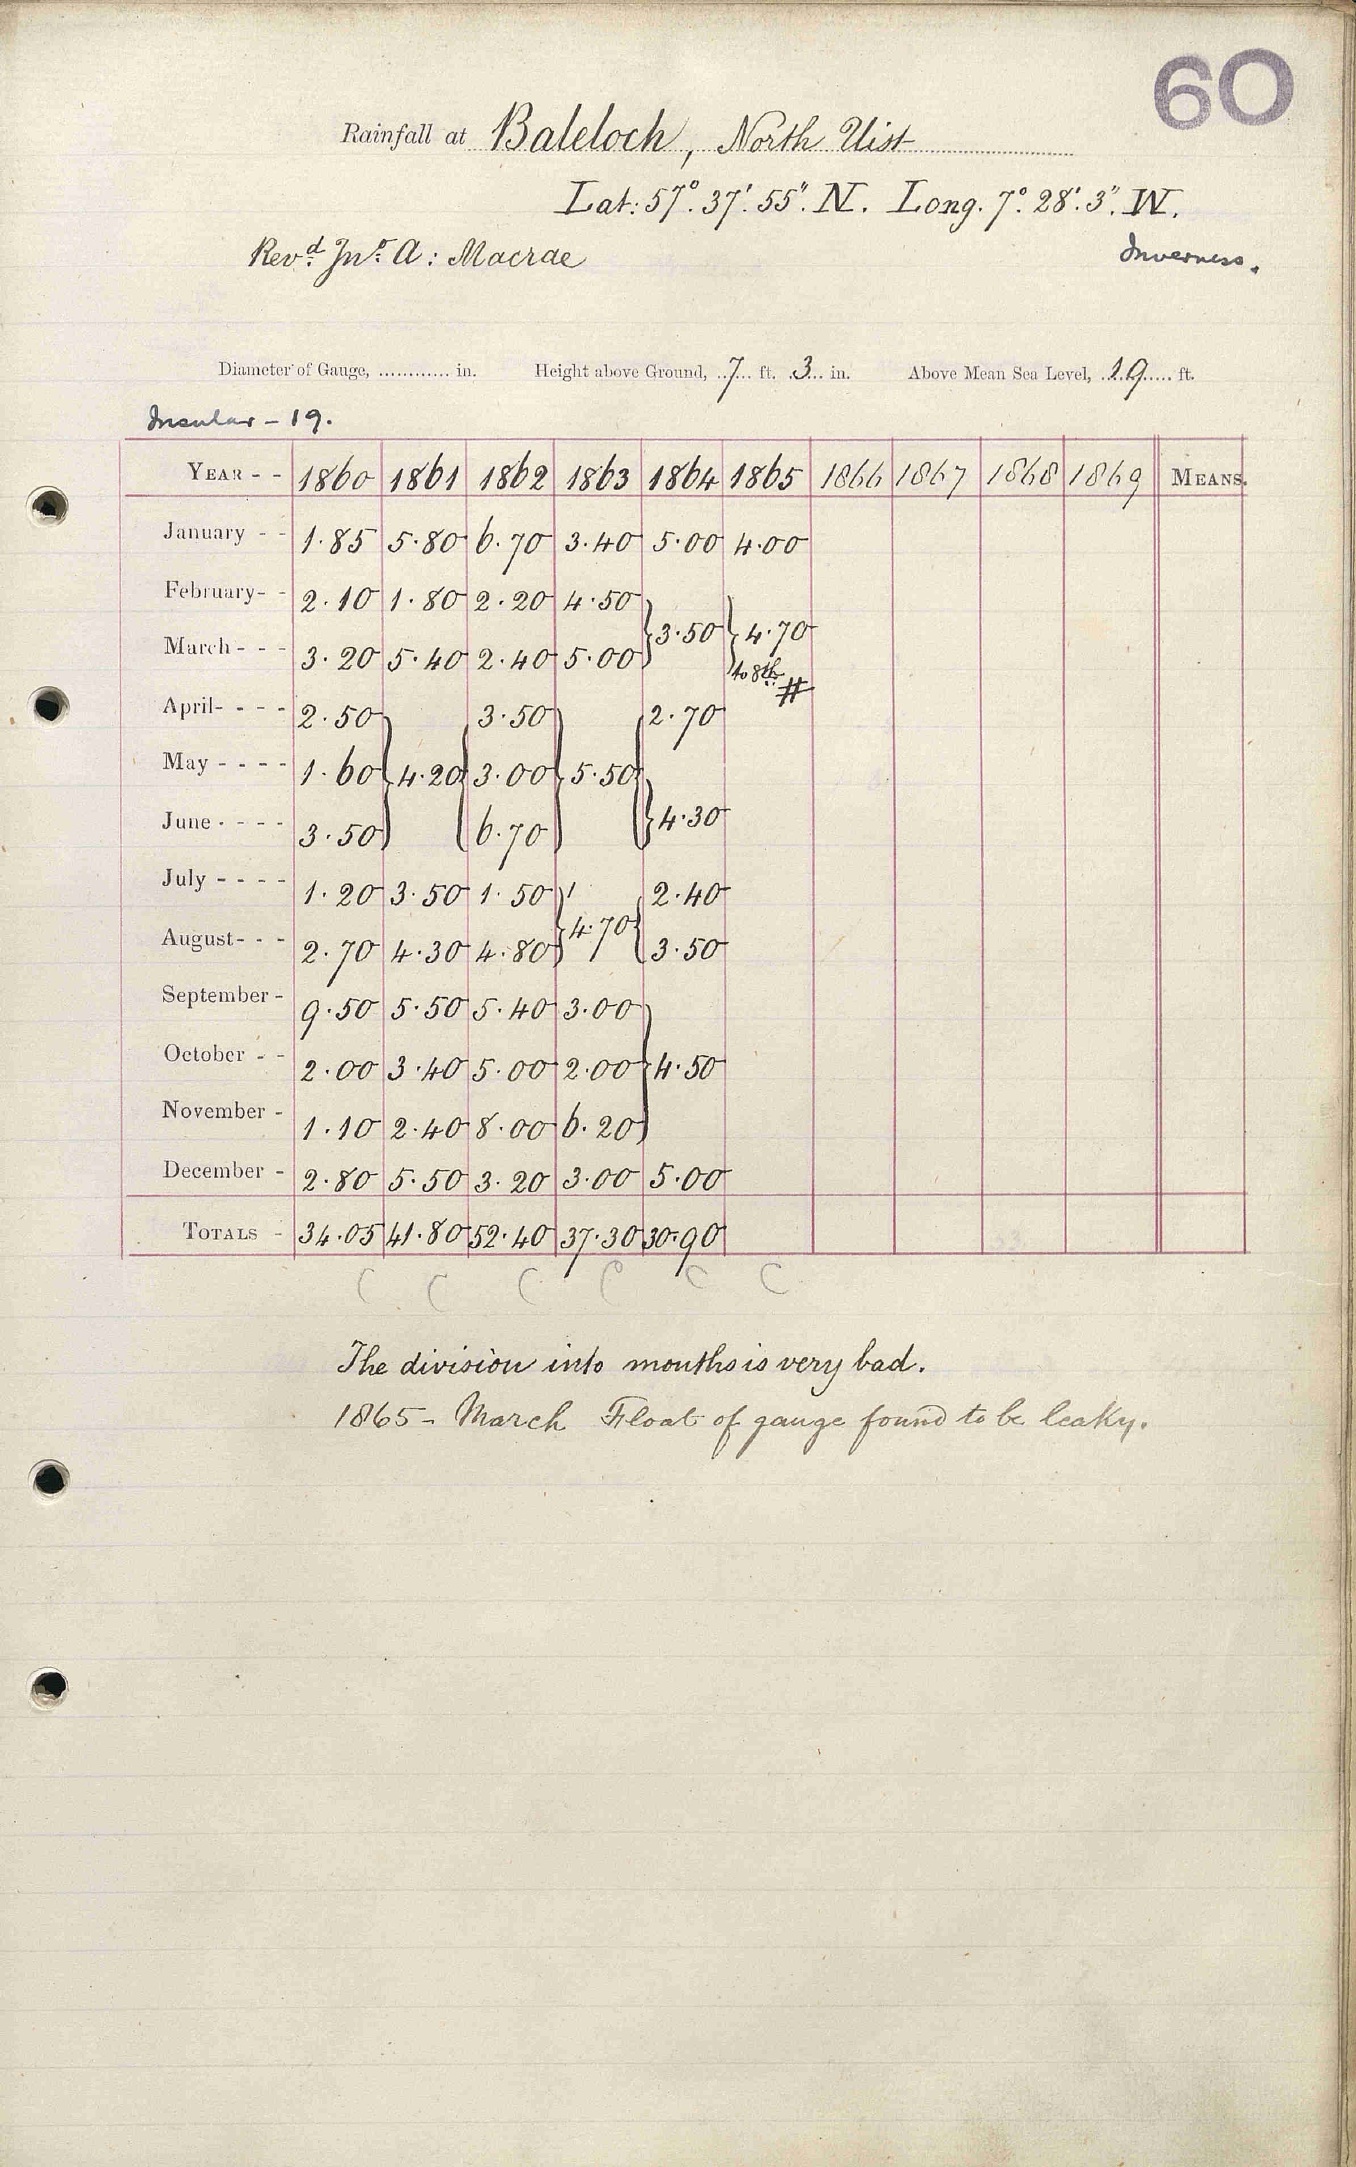 60
Rainfall at Baleloch, North Uist
Lat: 57°. 37'. 55". N. Long. 7°. 28'. 3". W.
Revd. Jnr. A: Macrae
Inverness.
Diameter of Gauge, ............ in. Height above Ground, 7 ft. 3 in. Above Mean Sea Level, 19 ft.
Insular - 19.
YEAR - - 1860 1861 1862 1863 1864 1865 1866 1867 1868 1869 MEANS.
January - - 1.85 5.80 6.70 3.40 5.00 4.00
February- - 2.10 1.80 2.20 4.50
} 3.50 } 4.70
March - - - 3.20 5.40 2.40 5.00
to 8th #
April- - - - 2.50 3.50 2.70
May - - - - 1.60 } 4.20 { 3.00 } 5.50 {
June - - - - 3.50 6.70 } 4.30
July - - - - 1.20 3.50 1.50 2.40
} 4.70 {
August- - - 2.70 4.30 4.80 3.50
September - 9.50 5.50 5.40 3.00
October - - 2.00 3.40 5.00 2.00 } 4.50
November - 1.10 2.40 8.00 6.20
December - 2.80 5.50 3.20 3.00 5.00
TOTALS - 34.05 41.80 52.40 37.30 30.90
C C C C C C
The division into months is very bad.
1865 - March Float of gauge found to be leaky.